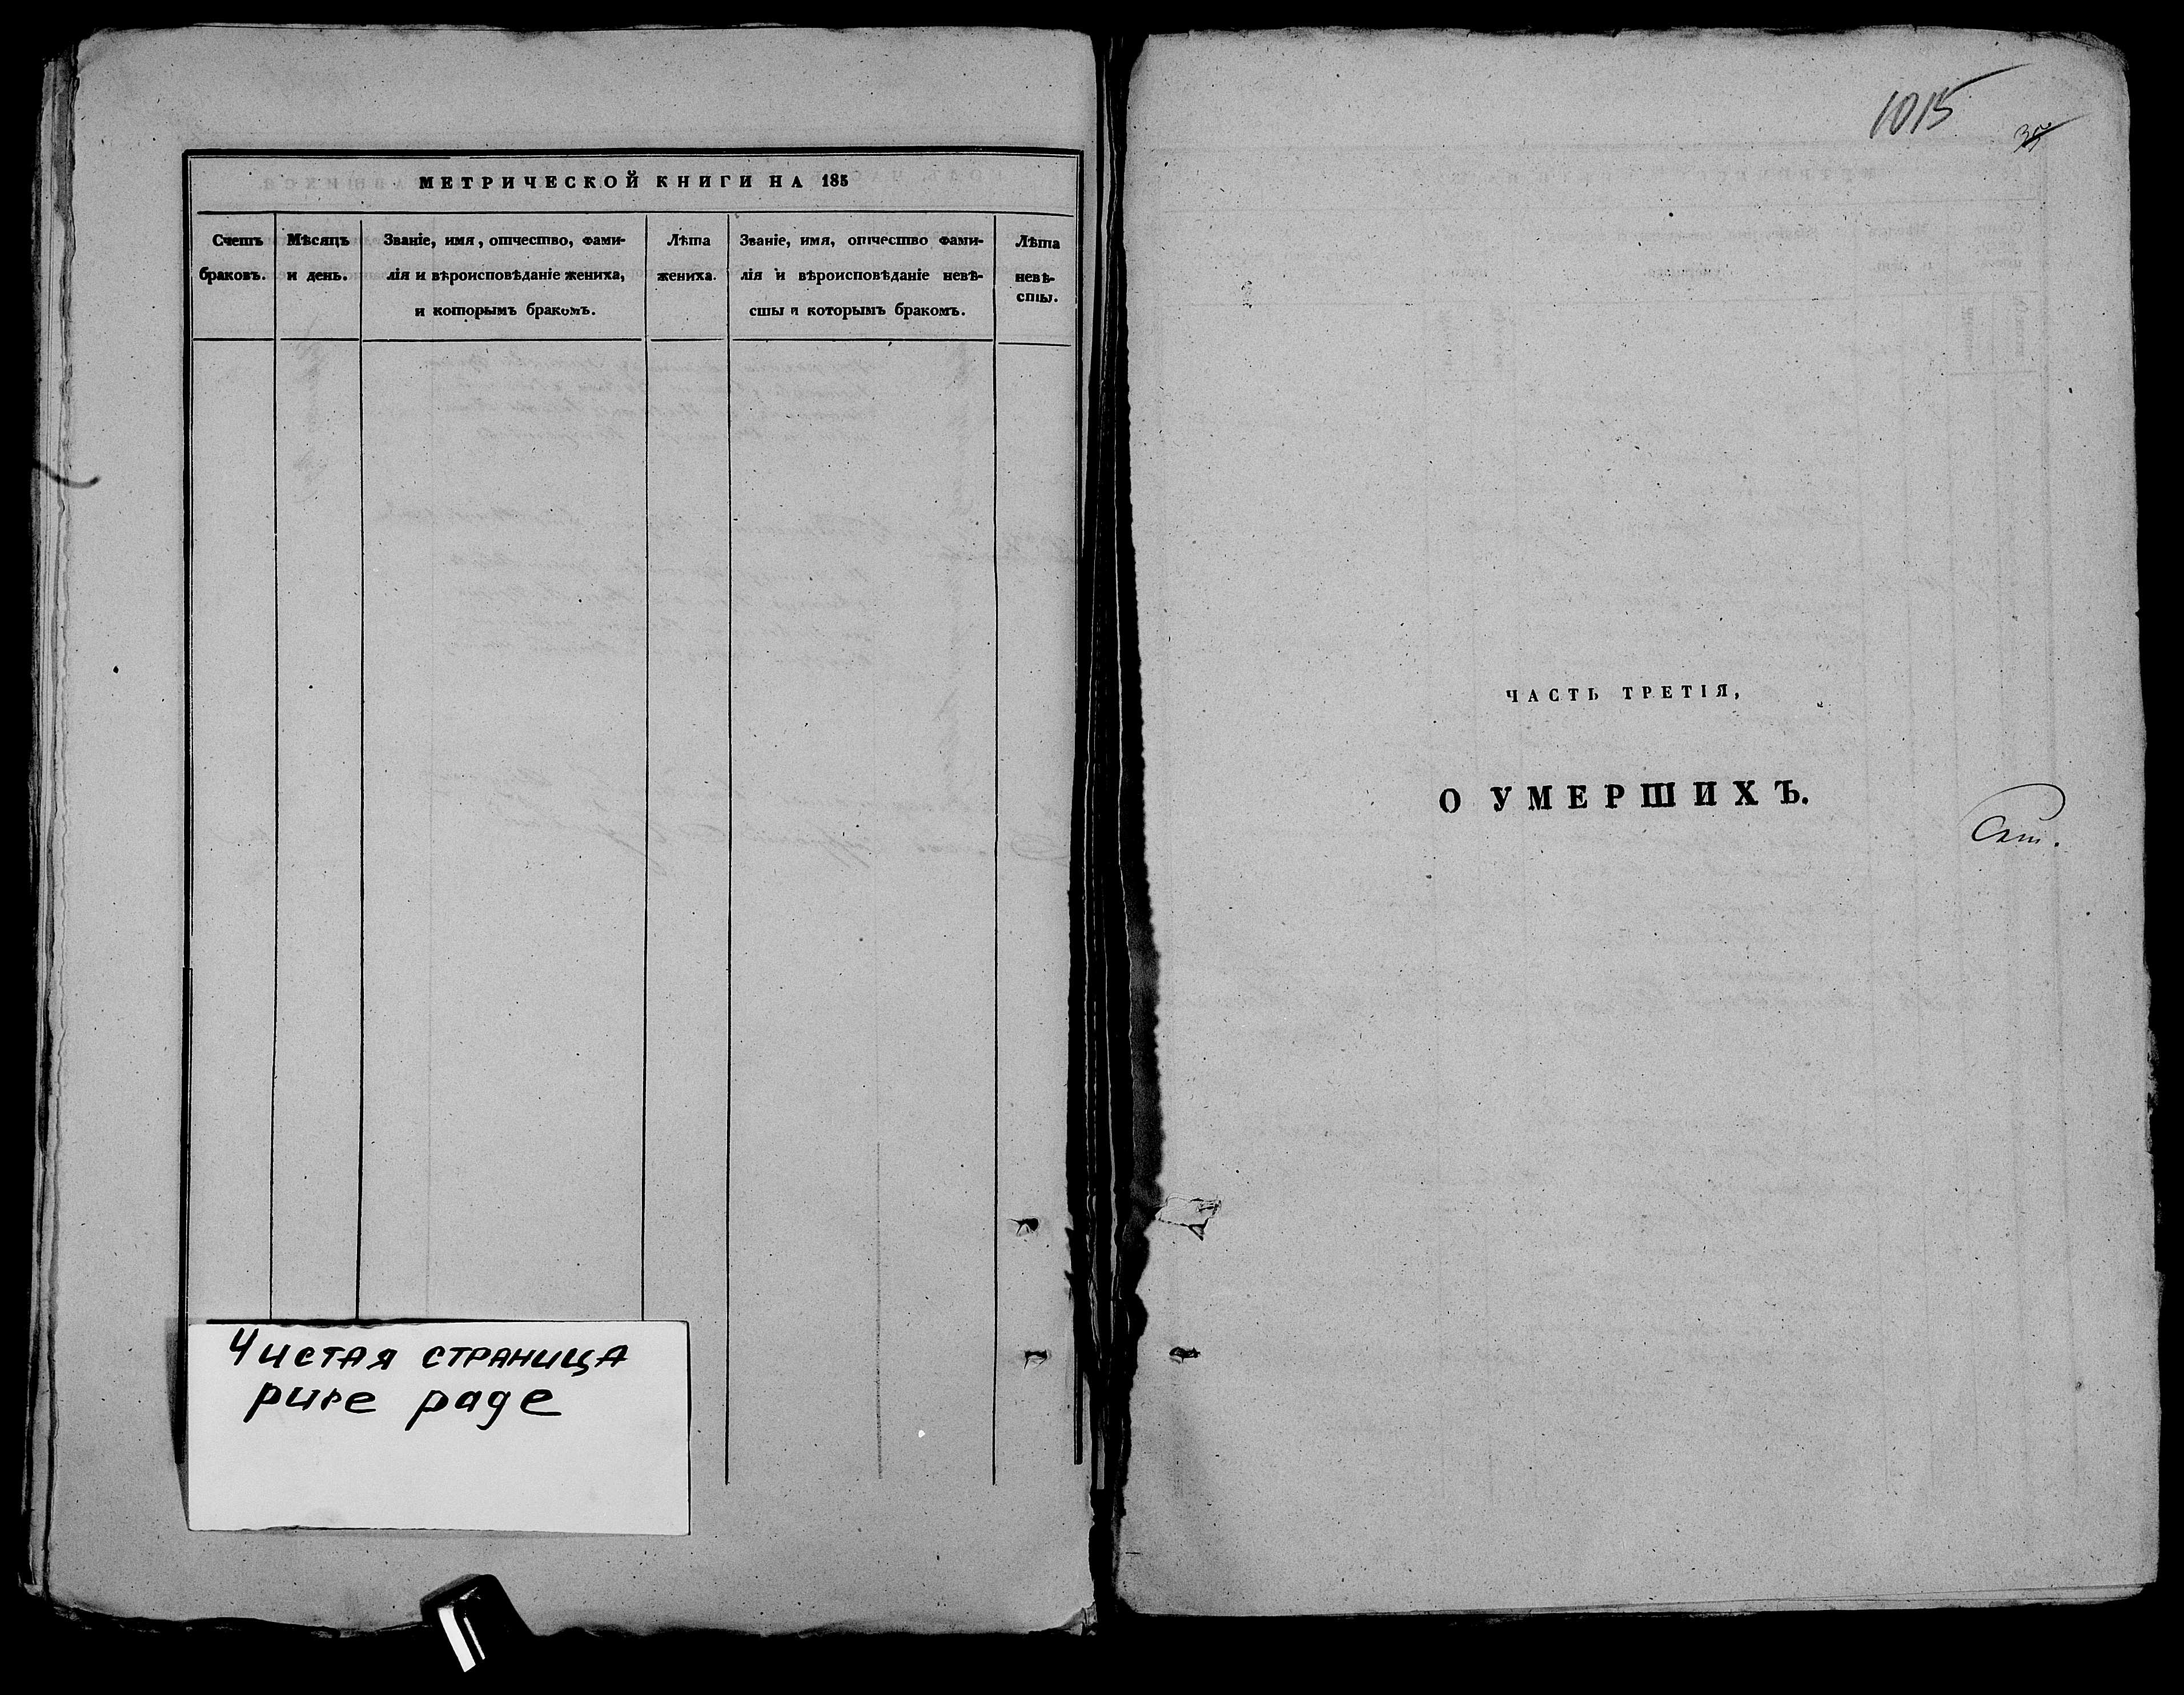 МЕТРИЧЕСКОЙ КНИГИ НА 185
Счетъ браковъ.
Мѣсяцъ и день.
Званіе, имя, отчество, фами-
лія и вѣроисповѣданіе жениха,
и которымъ бракомъ.
Лѣта
жениха.
Званіе, имя, отчество фами-
лія и вѣроисповѣданіе невѣ-
сты и которымъ бракомъ.
Лѣта
невѣ-
сты.
Чистая страница
pure page
1015
ЧАСТЬ ТРЕТІЯ,
О УМЕРШИХЪ.